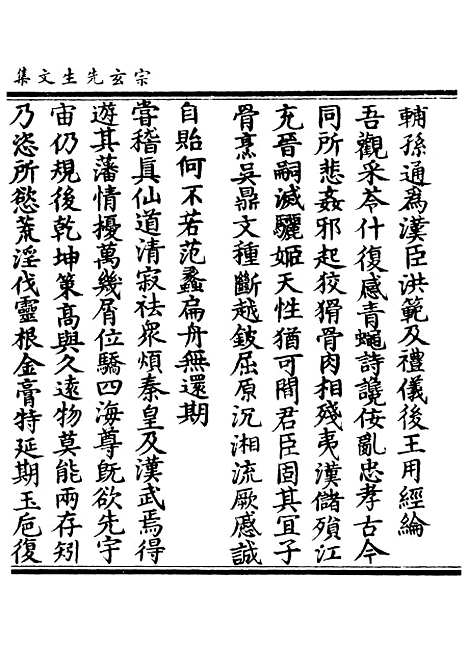 宗玄先生文集
輔孫通爲漢臣洪範及禮儀後王用經綸
吾觀采苓什復感青蠅詩讒佞亂忠孝古今
同所悲姦邪起狡猾骨肉相殘夷漢儲殞江
充晉嗣滅驪姬天性猶可間君臣固其宜子
骨烹吳鼎文種斷越鈹屈原沉湘流厥慼誠
自貽何不若范蠡扁舟無還期
嘗稽眞仙道清寂祛衆煩秦皇及漢武焉得
遊其藩情擾萬幾屑位驕四海尊旣欲先宇
宙仍規後乾坤策髙與久遠物莫能兩存矧
乃恣所慾荒淫伐靈根金膏特延期玉巵復